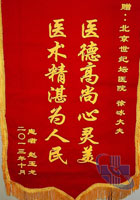 赠：北京世纪坛医院 徐冰大夫
医德高尚心灵美
医术精湛为人民
患者 赵玉龙
二〇一三年十月